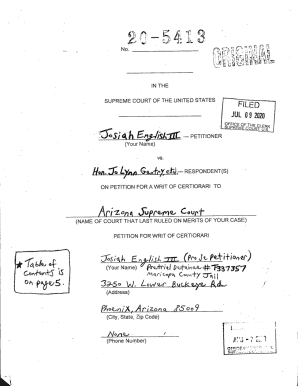 20-5413
ORIGINAL
No.
IN THE
SUPREME COURT OF THE UNITED STATES
FILED
JUL 09 2020
OFFICE OF THE CLERK
SUPREME COURT, U.S.
Josiah English III — PETITIONER
(Your Name)
vs.
Hon. Jo Lynn Gentry etc. — RESPONDENT(S)
ON PETITION FOR A WRIT OF CERTIORARI TO
Arizona Supreme Court
(NAME OF COURT THAT LAST RULED ON MERITS OF YOUR CASE)
PETITION FOR WRIT OF CERTIORARI
* Table of
Contents is
on page 5.
Josiah English III (Pro Se Petitioner)
(Your Name) Pretrial Detainee # T337357
Maricopa County Jail
3250 W. Lower Buckeye Rd.
(Address)
Phoenix, Arizona 85009
(City, State, Zip Code)
None
(Phone Number)